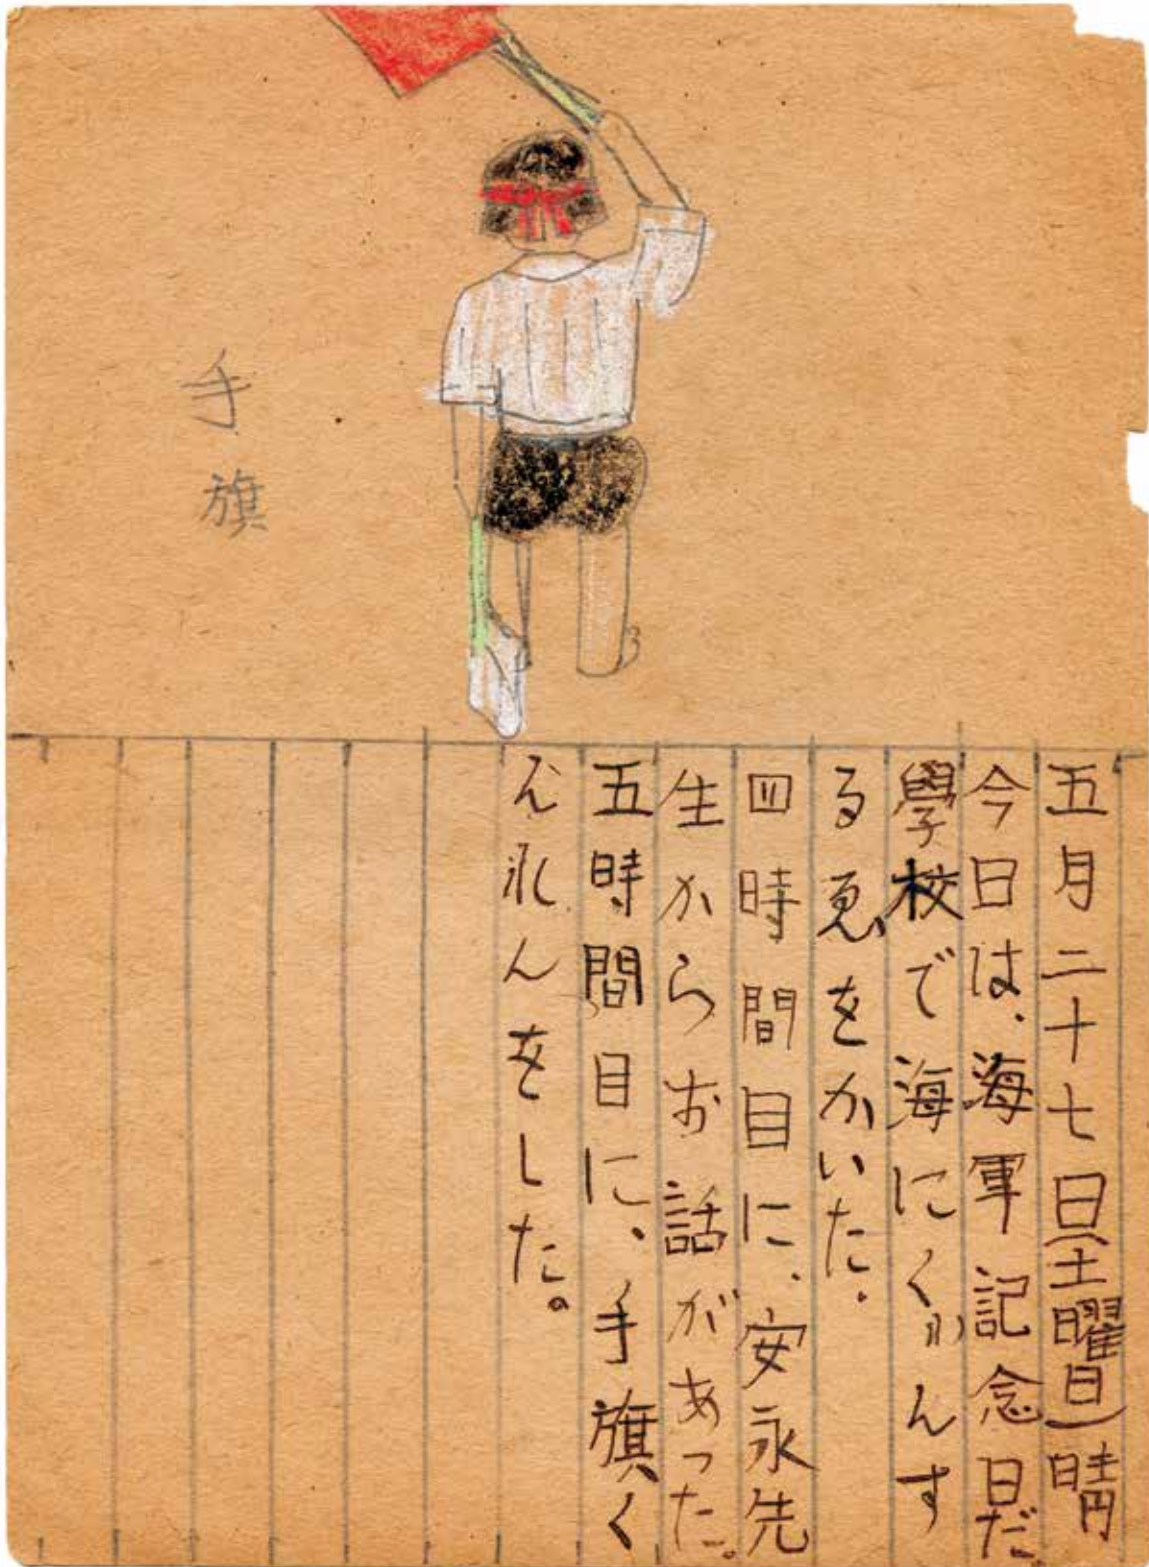 手旗
五月二十七日(土曜日)晴
今日は、海軍記念日だ
學校で海にくわんす
るゑをかいた。
四時間目に、安永先
生からお話があった。
五時間目に、手旗く
んれんをした。